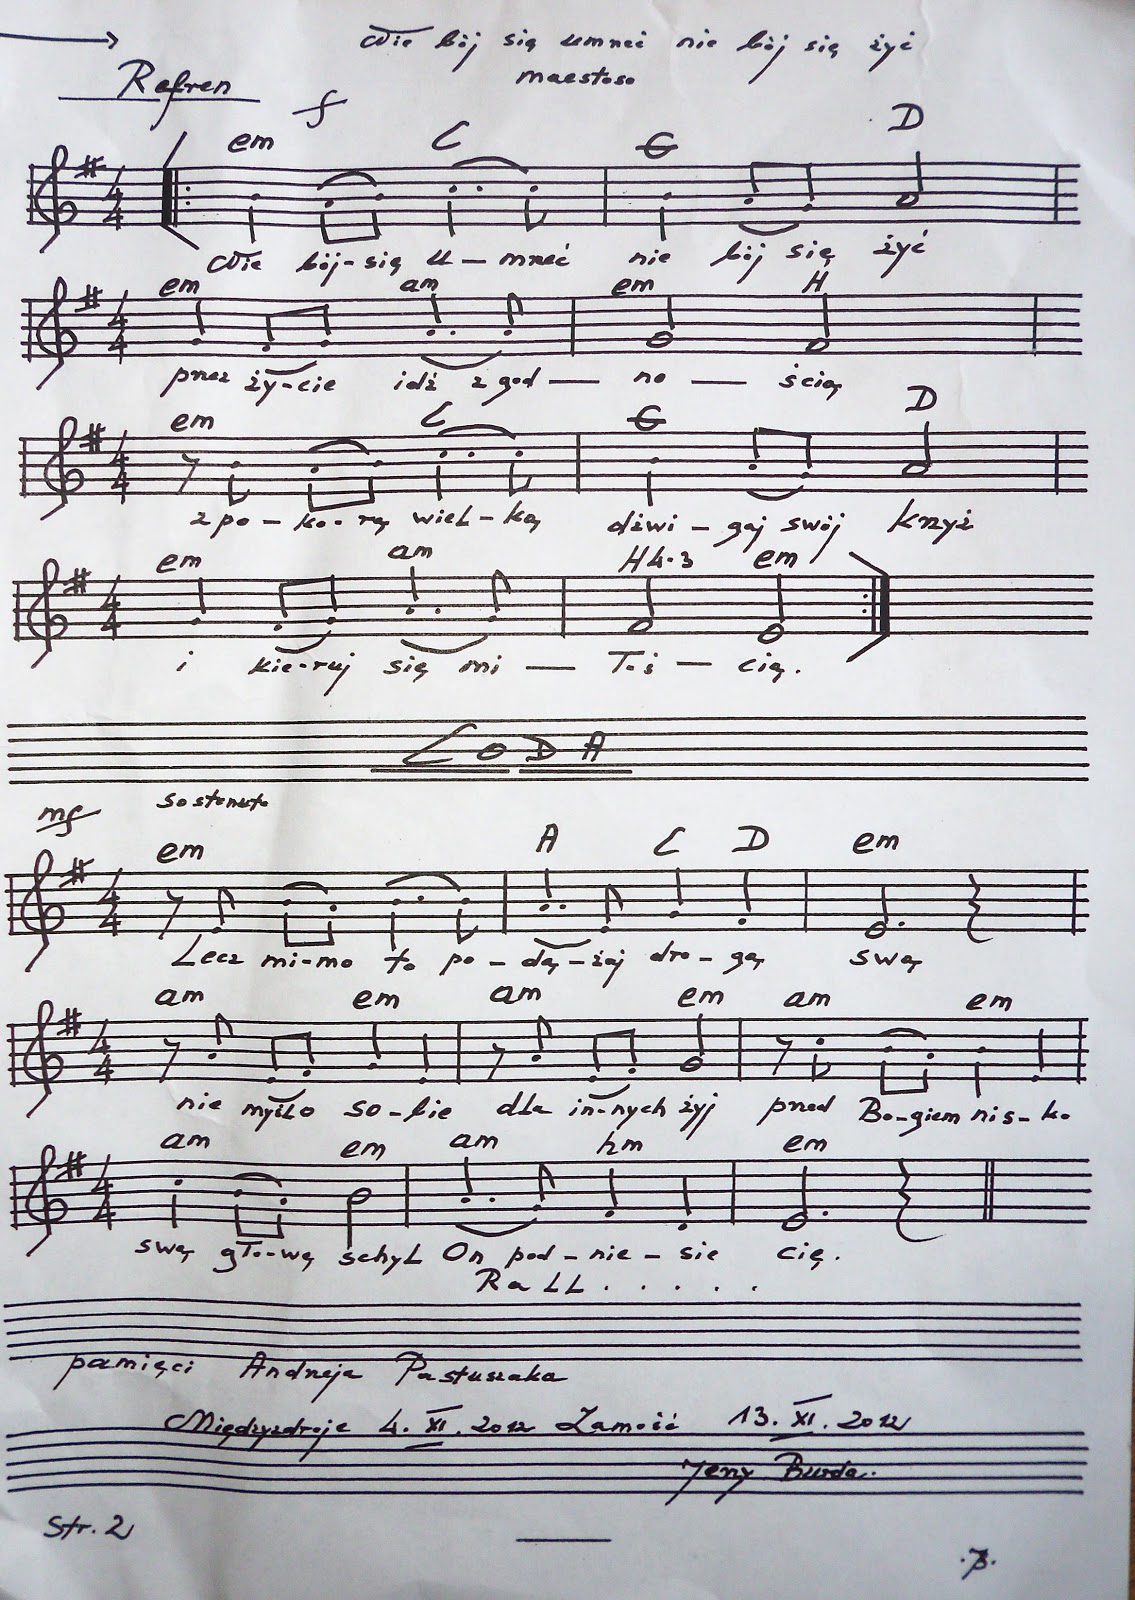 Nie bój się umrzeć nie bój się żyć
maestoso
Refren
f
em C G D
Nie bój-się u-mrzeć nie bój się żyć
em am em H
przez ży-cie idź z god — no — ścią
em C G D
z po-ko-rą wiel-ką dźwi-gaj swój krzyż
em am H4-3 em
i kie-ruj się mi — łoś — cią.
CODA
mf sostenuto
em A C D em
Lecz mi-mo to po-dą-żaj dro-gą swą
am em am em am em
nie myśl o so-bie dla in-nych żyj przed Bo-giem nis-ko
am em am hm em
swą gło-wę schyl On pod-nie-sie cię.
Rall.....
pamięci Andrzeja Pastuszaka
Międzyzdroje 4.XI.2012 Zamość 13.XI.2012
Jerzy Burda.
Str. 2